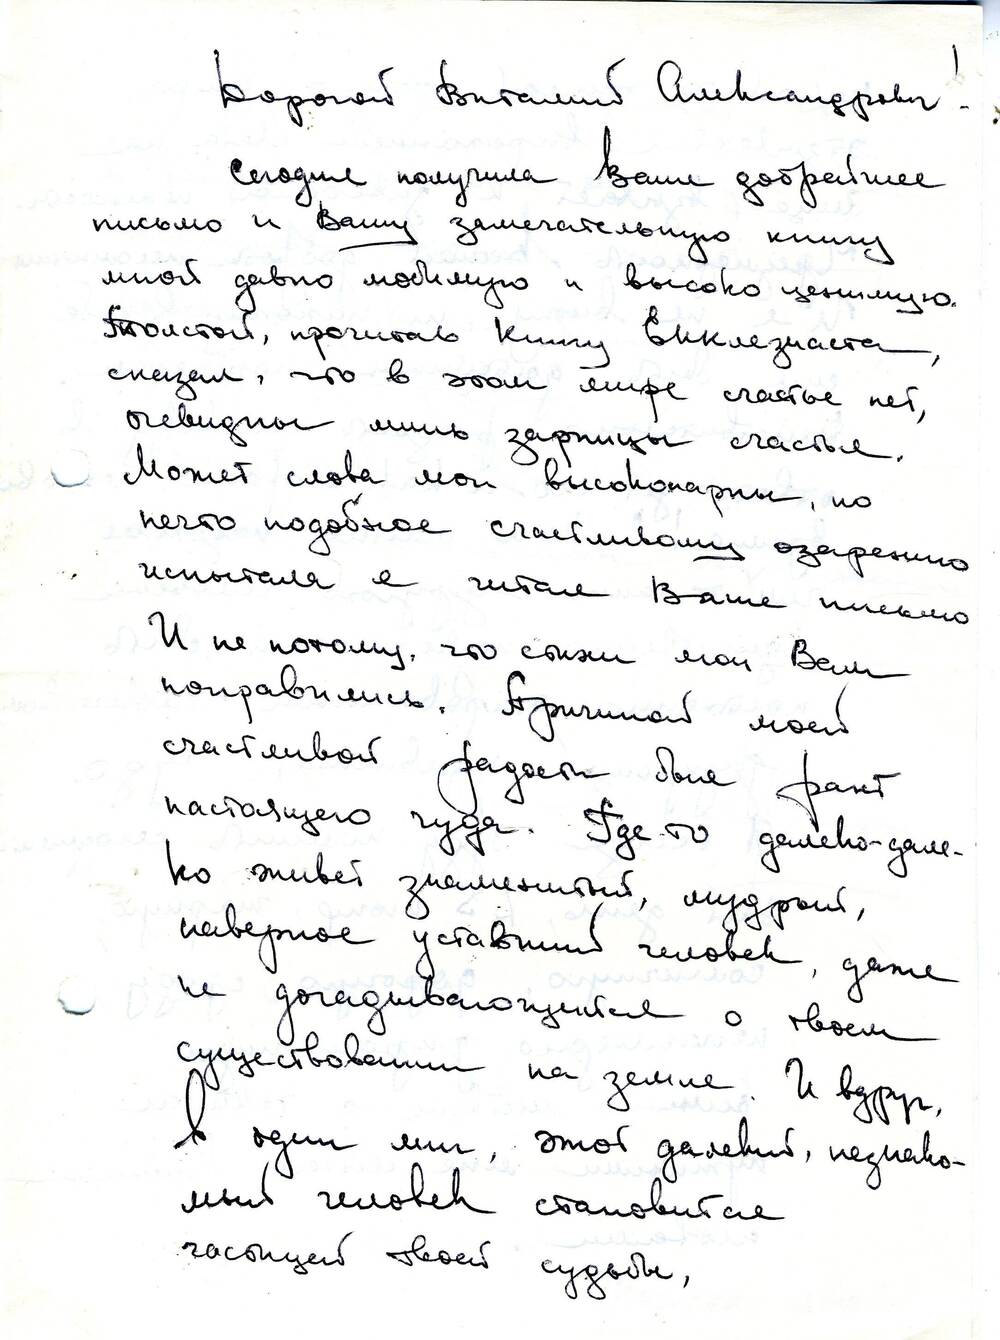 Дорогой Виталий Александрович!
Сегодня получила Ваше добрейшее
письмо и Вашу замечательную книгу
мной давно любимую и высоко ценимую.
Толстой, прочитав Книгу Екклезиаста,
сказал, что в этом мире счастье нет,
очевидны лишь зарницы счастья.
Может слова мои высокопарны, но
нечто подобное счастливому озарению
испытала я читая Ваше письмо
И не потому, что стихи мои Вам
понравились. Причиной моей
счастливой радости был факт
настоящего чуда. Где-то далеко-дале-
ко живёт знаменитый, мудрый,
наверное уставший человек, даже
не догадывающийся о твоем
существовании на земле. И вдруг,
в один миг, этот далекий, незнако-
мый человек становится
частицей твоей судьбы,